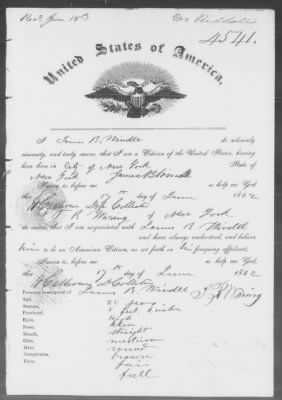 Recd June 18th
4541.
United States of America.
I James B. Windle do solemnly,
sincerely, and truly swear, that I am a Citizen of the United States, having
been born in City of New York State of
New York James B Windle
Sworn to, before me so help me God.
this 17th day of June 1862
of New York
do swear, that I am acquainted with James B. Windle
and have always understood, and believe
him to be an American Citizen, as set forth in his foregoing affidavit.
Sworn to, before me so help me God.
this 17th day of June 1862
Personal description of James B. Windle
Age, 25 years
Stature, 5 feet inches
Forehead, High
Eyes,
Nose, straight
Mouth, medium
Chin, round
Hair, brown
Complexion, fair
Face, full